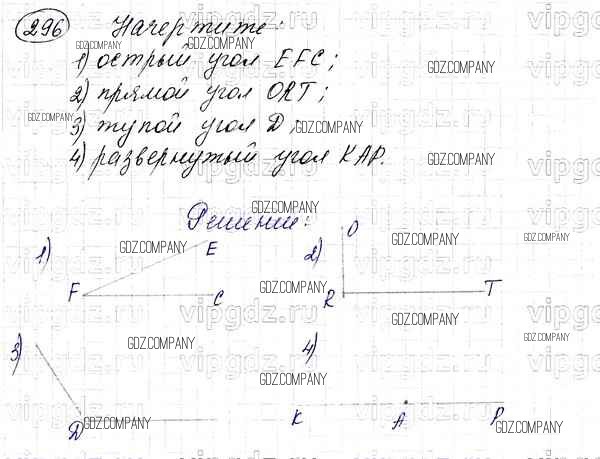 296 Начертите:
1) острый угол EFC;
2) прямой угол ORT;
3) тупой угол D;
4) развернутый угол KAP.
Решение:
1) E F C
2) O R T
3) D
4) K A P
GDZ.COMPANY
vipgdz.ru